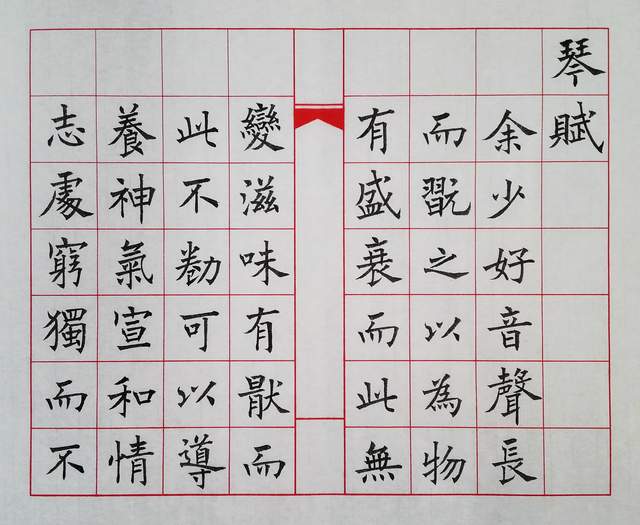 琴賦
余少好音聲長
而翫之以為物
有盛衰而此無
變滋味有猒而
此不勌可以導
養神氣宣和情
志處窮獨而不